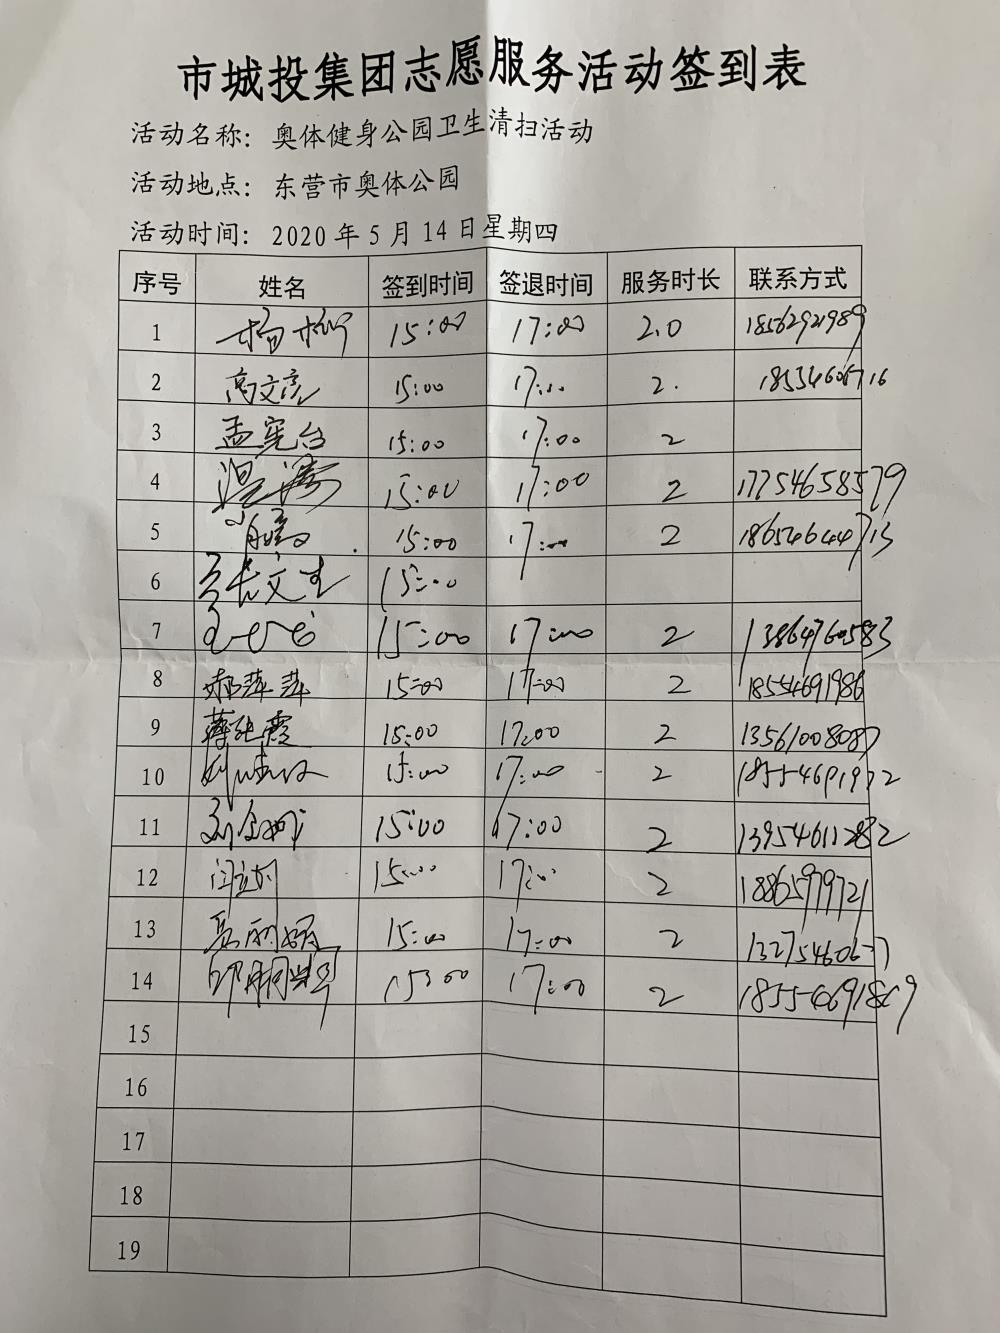 市城投集团志愿服务活动签到表
活动名称：奥体健身公园卫生清扫活动
活动地点：东营市奥体公园
活动时间：2020年5月14日星期四
序号 姓名 签到时间 签退时间 服务时长 联系方式
1 杨 15:00 17:00 2.0 18562921989
2 高文彦 15:00 17:00 2. 18554606716
3 孟宪台 15:00 17:00 2
4 温涛 15:00 17:00 2 17754658579
5 肖鹏 15:00 17:00 2 18654644713
6 15:00
7 15:00 17:00 2 13864760583
8 郝萍萍 15:00 17:00 2 18554691986
9 蒋艳霞 15:00 17:00 2 13561008087
10 15:00 17:00 2 18554691972
11 15:00 17:00 2 13954611282
12 15:00 17:00 2 18865979721
13 15:00 17:00 2
14 15:00 17:00 2
15
16
17
18
19